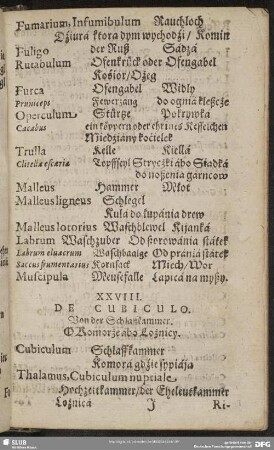 Fumarium, Infumibulum Rauchloch
Dźiurá ktora dym wychodźi / Komin
Fuligo der Ruß Sádzá
Rutabulum Ofenkrück oder Ofengabel
Kośior/Ożeg
Furca Ofengabel Widły
Prunicepi Fewerzang do ogniá kleszcze
Operculum Stürtze Pokrywká
Cacabus ein köpern oder ehrines Kesselchen
Miedźiány kociełek
Trulla Kelle Kiellá
Clitella escaria Topffseyl Stryczki ábo Siadká
do noszenia gárncow
Malleus Hammer Młot
Malleus ligneus Schlegel
Kulá do łupánia drew
Malleus lotorius Waschblewel Kijánká
Labrum Waschzuber Od szorowánia státek
Labrum eluacrum Waschbaalge Od pránia státek
Saccus frumentarius Kornsack Miech/Wor
Muscipula Meusefalle Łapicá ná myszy.
XXVIII.
DE CUBICULO.
Von der Schlaffkammer.
O Komorze ábo Łożnicy.
Cubiculum Schlaffkammer
Komorá gdźie sypiáją
Thalamus, Cubiculum nuptiale
Hochzeitkammer/der Eheleutkammer
Łożnicá J Ri-
SLUB
DFG